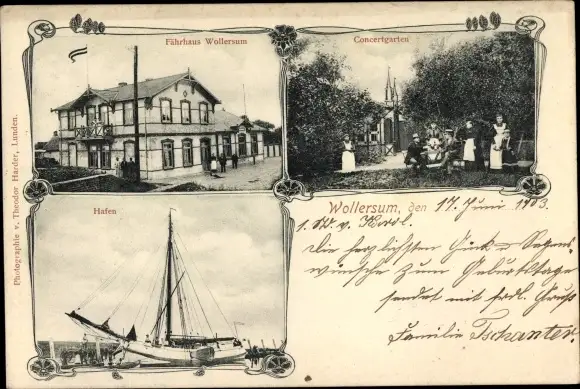 Fährhaus Wollersum
Concertgarten
Photographie v. Theodor Harder, Lunden.
Hafen
Wollersum, den 17. Juni 1903.
Die herzlichsten Glück u. Segens-
wünsche zum Geburtstage
sendet mit frdl. Gruß
Familie Tschanter.